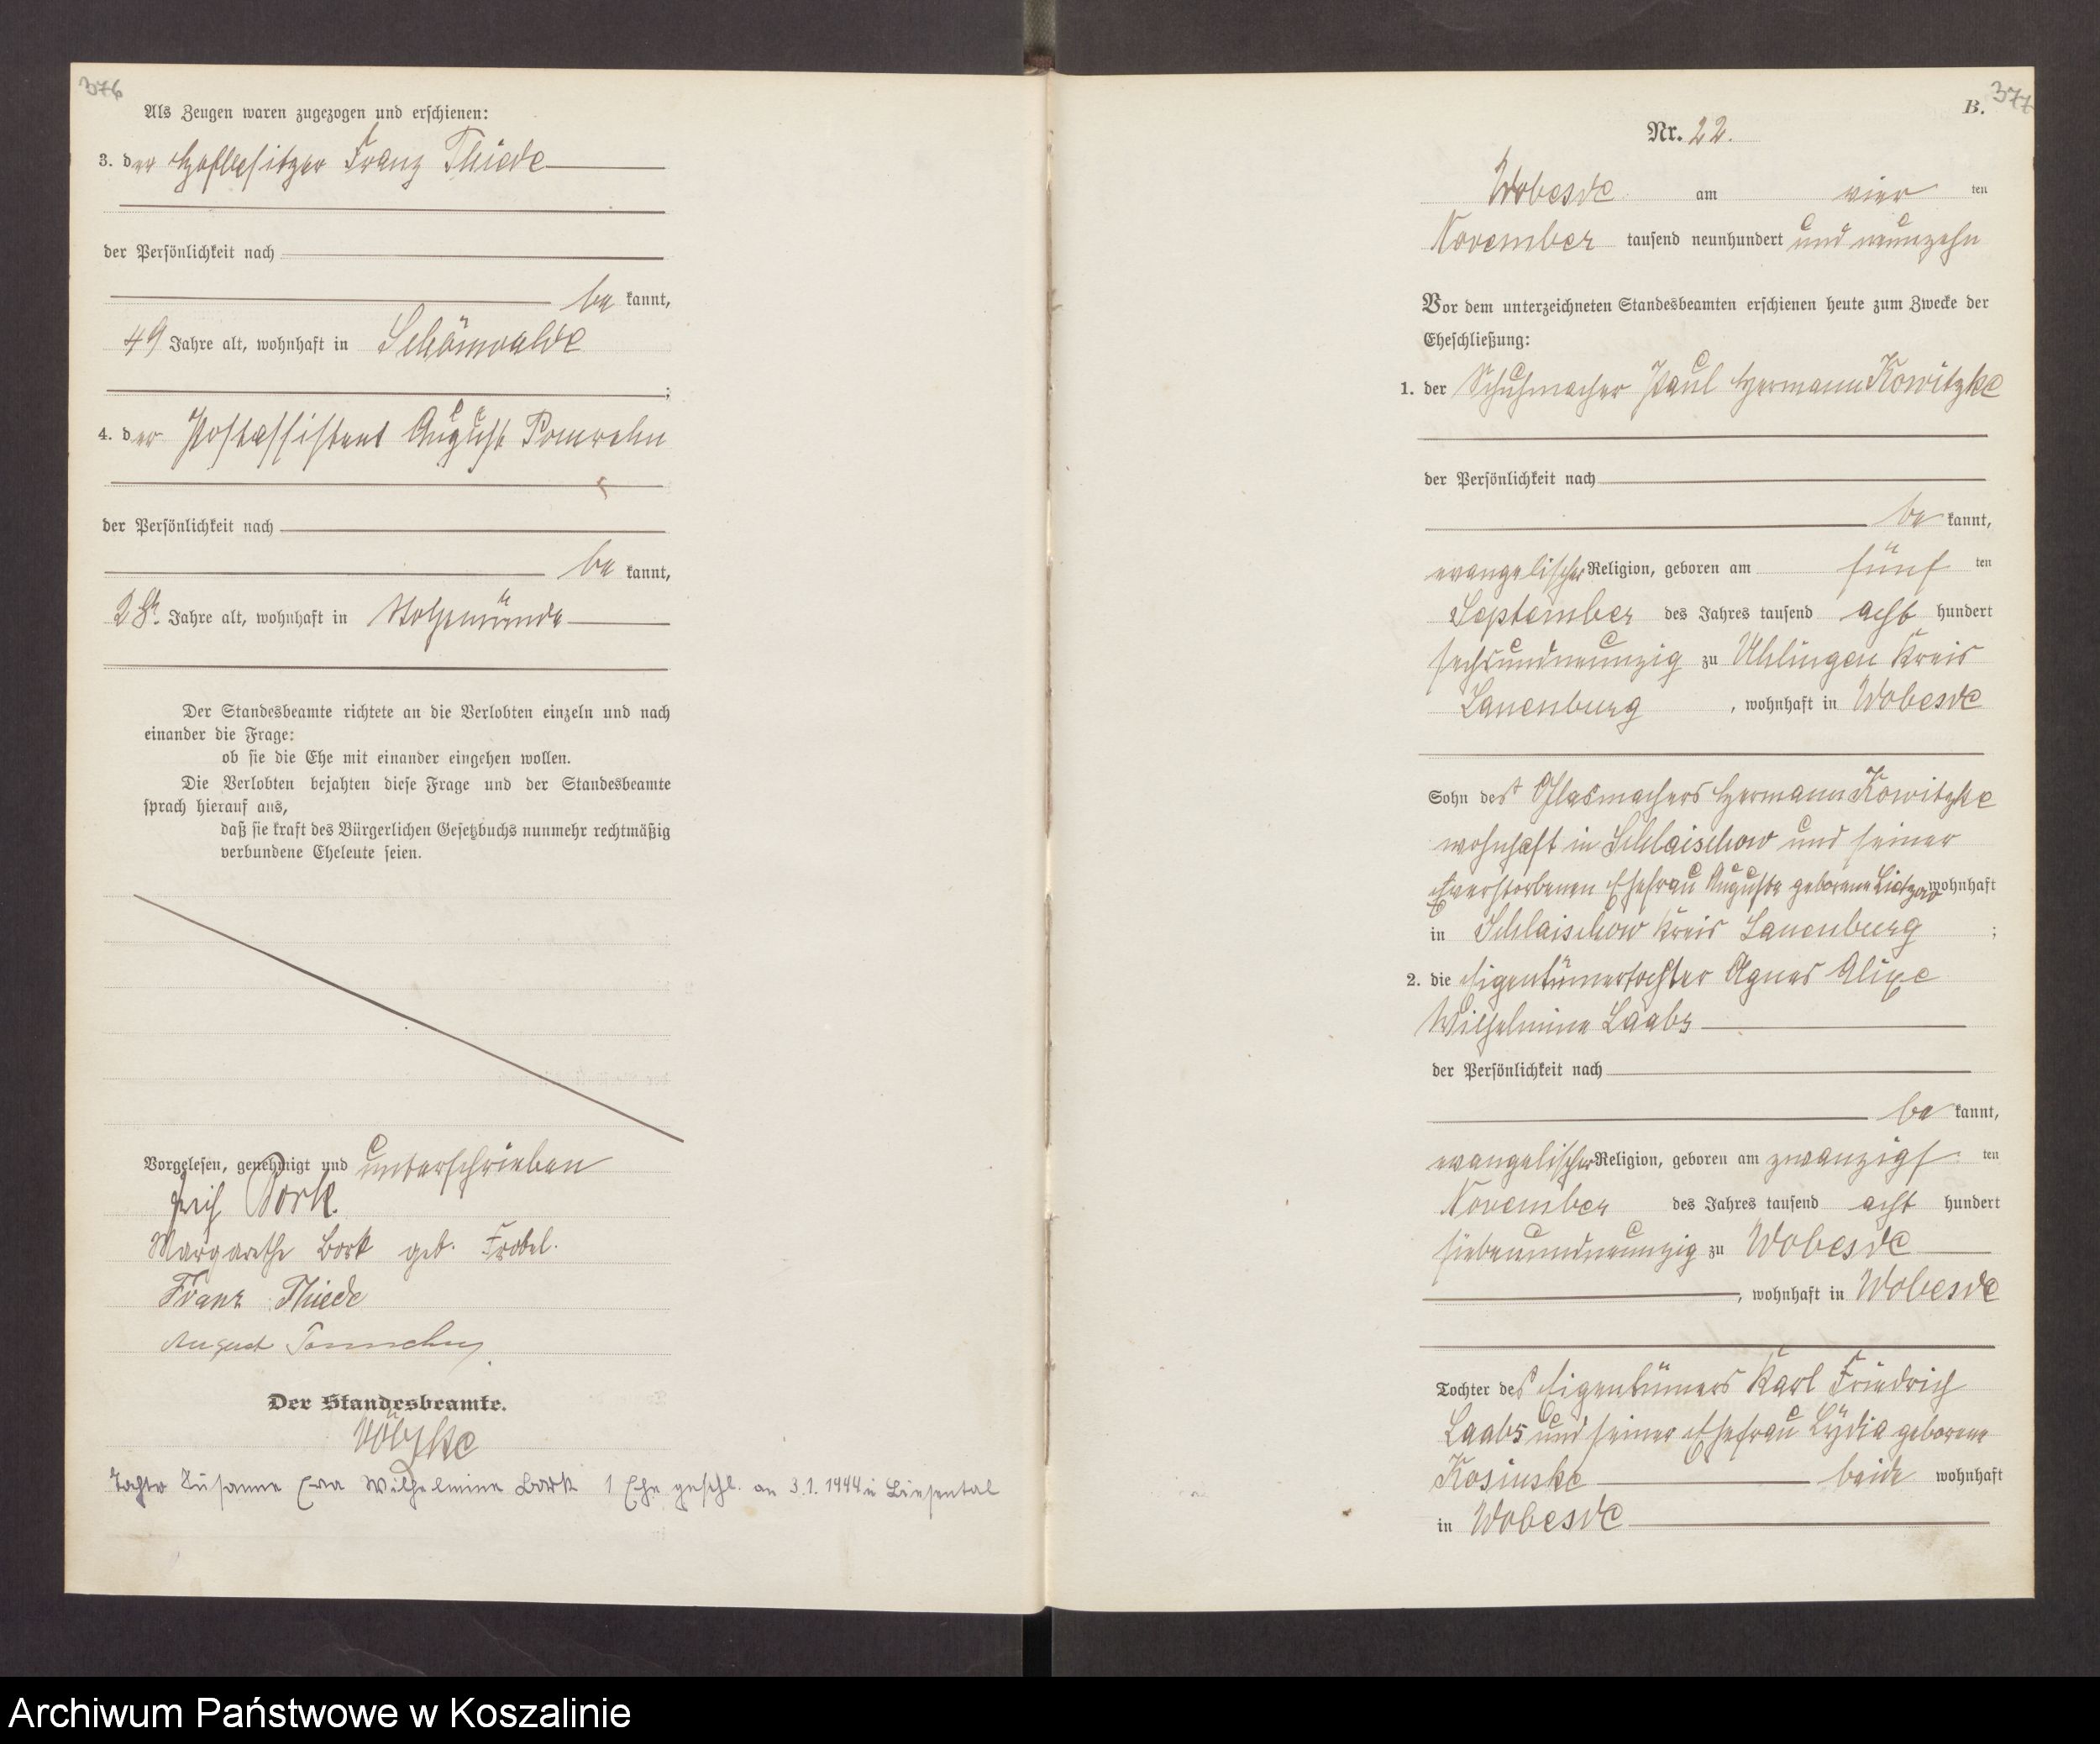 376
Als Zeugen waren zugezogen und erschienen:
3. der Hofbesitzer Franz Thiede
der Persönlichkeit nach
be kannt,
49 Jahre alt, wohnhaft in Schönwalde
;
4. der Postassistent August Pomrehn
der Persönlichkeit nach
be kannt,
28 Jahre alt, wohnhaft in Stolpmünde
Der Standesbeamte richtete an die Verlobten einzeln und nach
einander die Frage:
ob sie die Ehe mit einander eingehen wollen.
Die Verlobten bejahten diese Frage und der Standesbeamte
sprach hierauf aus,
daß sie kraft des Bürgerlichen Gesetzbuchs nunmehr rechtmäßig
verbundene Eheleute seien.
Vorgelesen, genehmigt und unterschrieben
Erich Bork.
Margarethe Bork geb. Frobel.
Franz Thiede
August Pomrehn
Der Standesbeamte.
Tochter Susanne Eva Wilhelmine Bork 1 Ehe geschl. am 3.1.1944 in
377
B.
Nr. 22.
Wobesde am vier ten
November tausend neunhundert und neunzehn
Vor dem unterzeichneten Standesbeamten erschienen heute zum Zwecke der
Eheschließung:
1. der Schuhmacher Paul Hermann Kowitzke
der Persönlichkeit nach
be kannt,
evangelischer Religion, geboren am fünf ten
September des Jahres tausend acht hundert
sechsundneunzig zu Uhlingen Kreis
Lauenburg, wohnhaft in Wobesde
Sohn des Glasmachers Hermann Kowitzke
wohnhaft in Schlaischow und seiner
verstorbenen Ehefrau Auguste geborene Lietzow wohnhaft
in Schlaischow Kreis Lauenburg ;
2. die Eigentümertochter Agnes Alixe
Wilhelmine Laabs
der Persönlichkeit nach
be kannt,
evangelischer Religion, geboren am zwanzigs ten
November des Jahres tausend acht hundert
siebenundneunzig zu Wobesde
, wohnhaft in Wobesde
Tochter des Eigentümers Karl Friedrich
Laabs und seiner Ehefrau Lydia geborene
Kosinske beide wohnhaft
in Wobesde
Archiwum Państwowe w Koszalinie